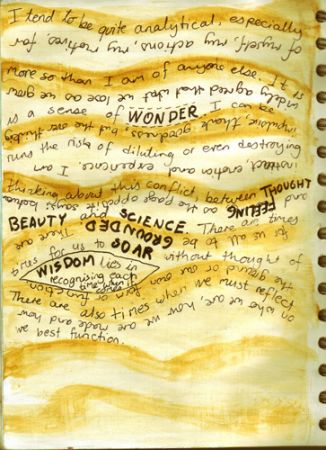 I tend to be quite analytical, especially
of myself, my actions, my motives, far
more so than I am of anyone else. It is
widely agreed that what we lose as we grow
is a sense of WONDER. I can be
impulsive, thank goodness, but the over thinking
runs the risk of diluting or even destroying
instinct, emotion and experience. I am
thinking about this conflict, between THOUGHT
and FEELING as the page opposite says: balance
BEAUTY and SCIENCE. There are times
for us all to be GROUNDED. There are
times for us to SOAR without thought of
the ground or our own form or function.
WISDOM lies in
recognising each
time when it
There are also times when we must reflect
on who we are, how we are made and how
we best function.